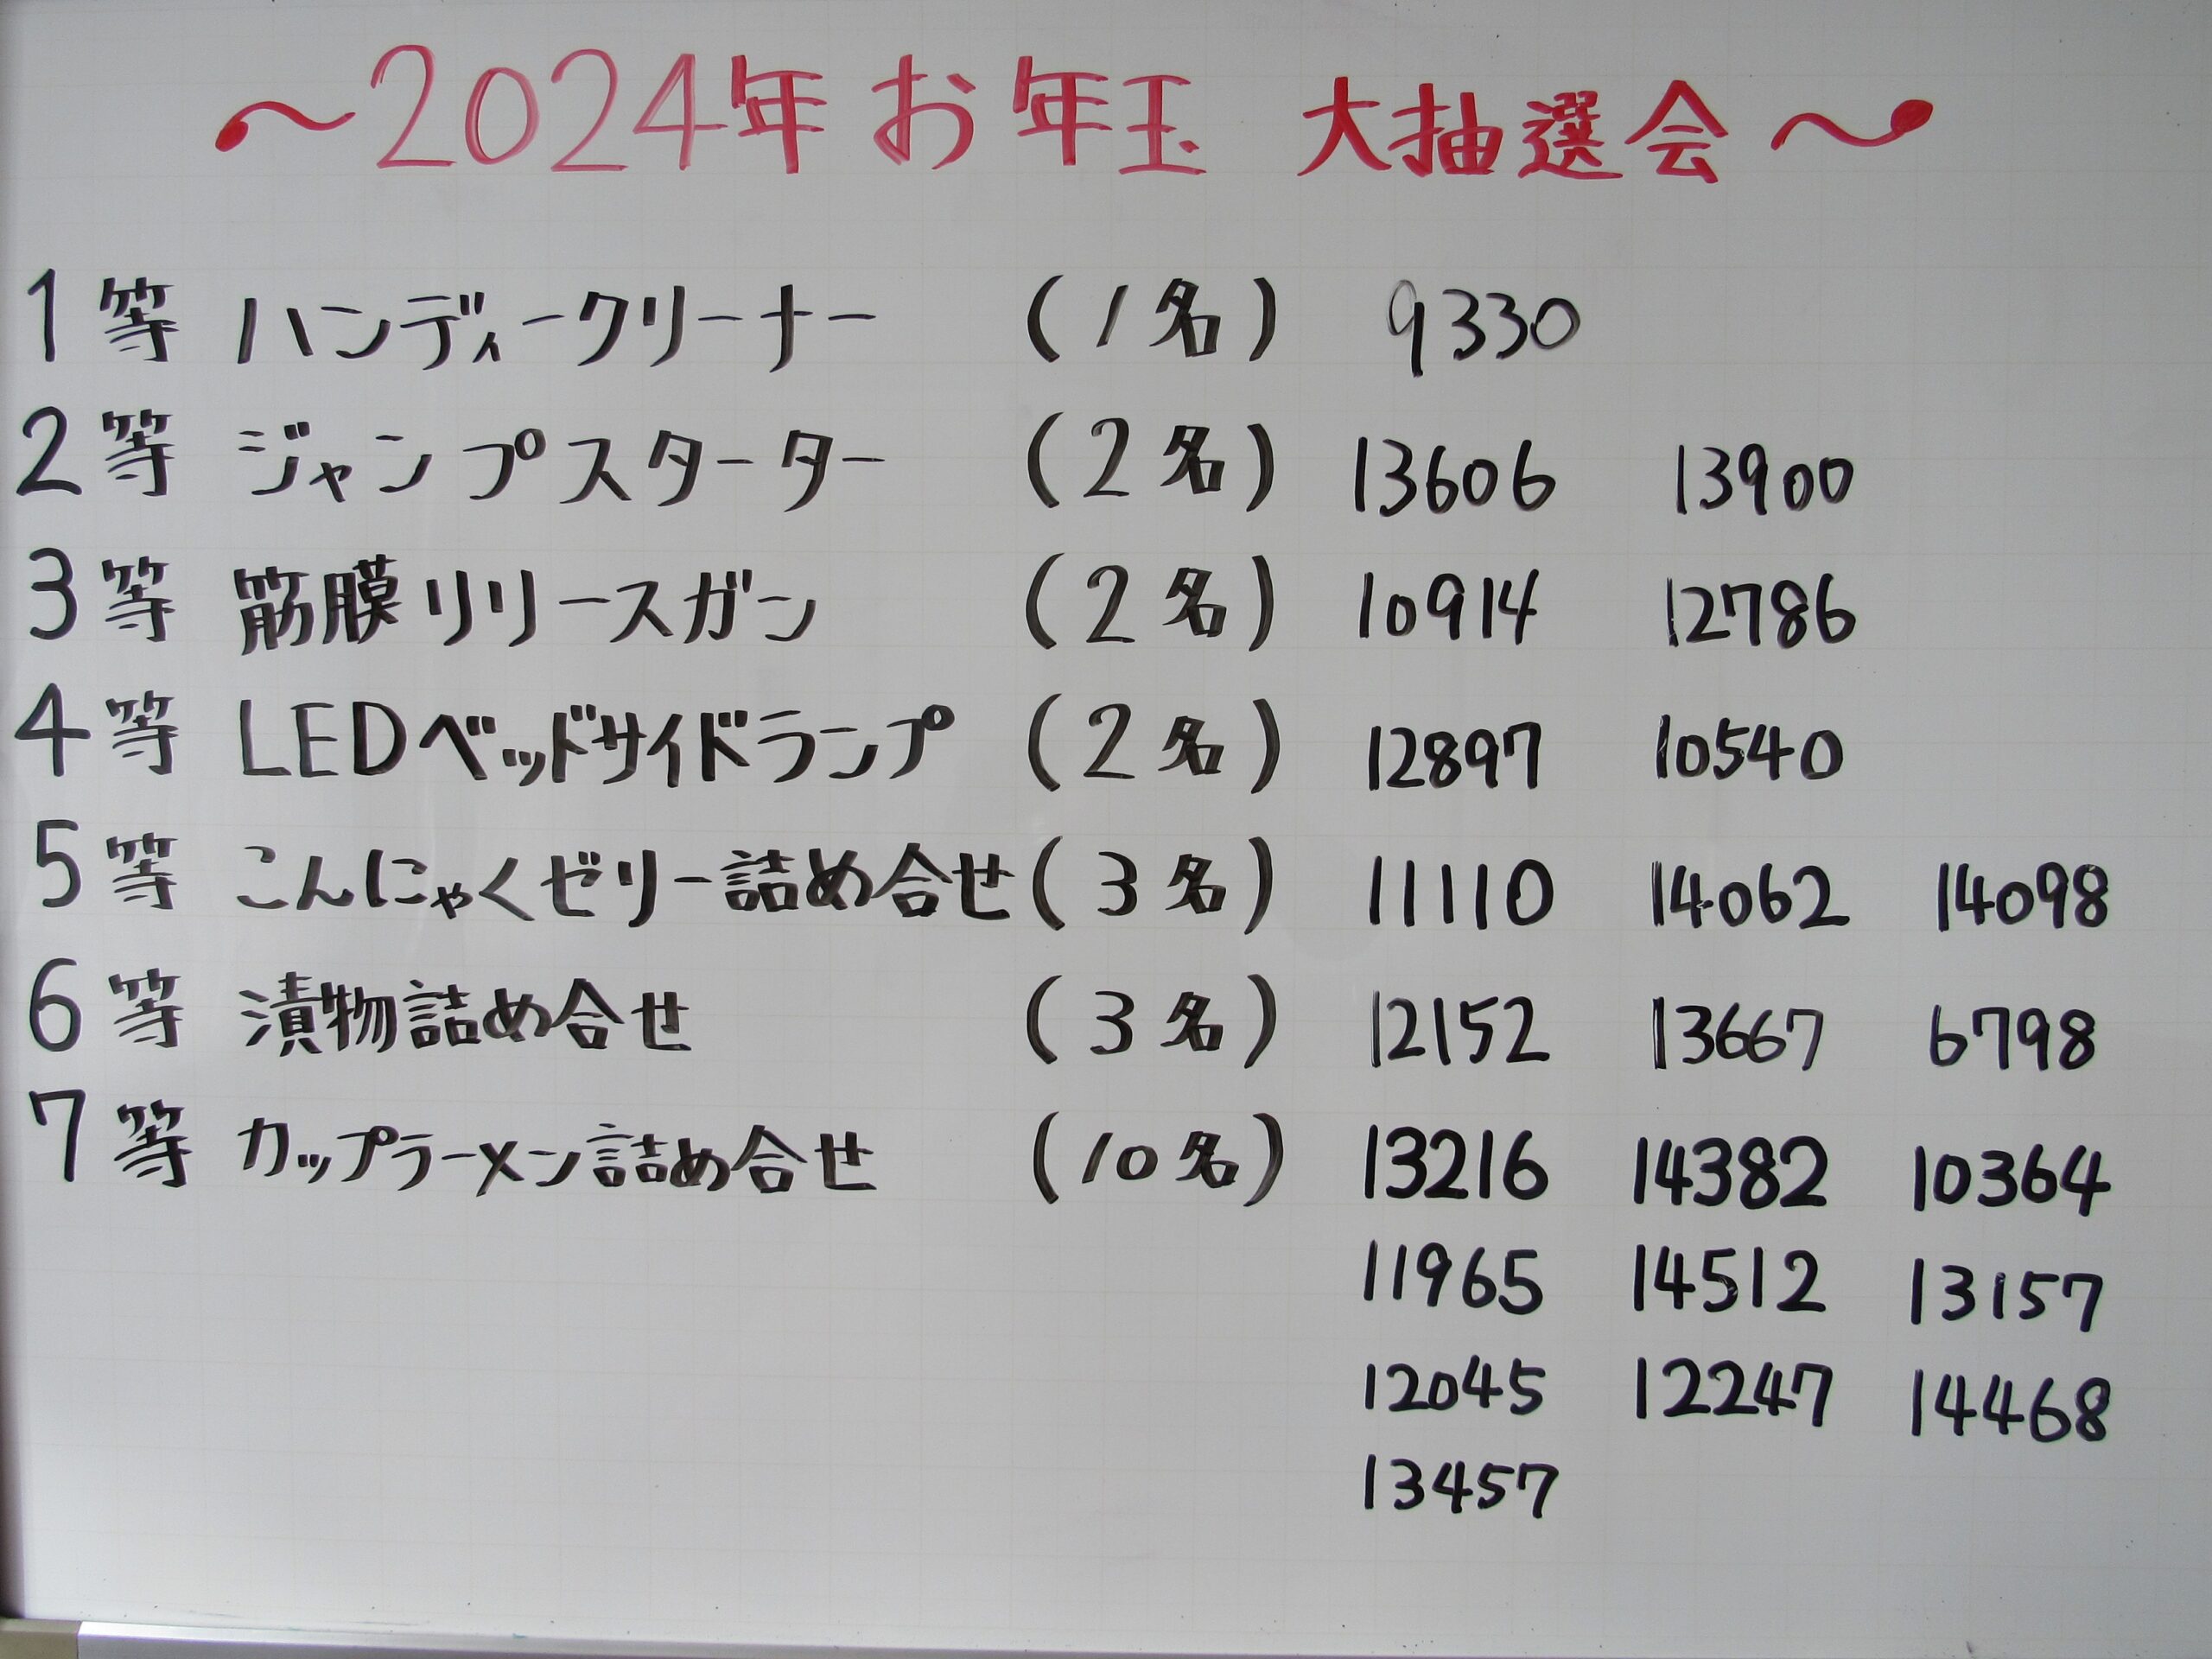 ～2024年 お年玉 大抽選会～
1等 ハンディークリーナー (1名) 9330
2等 ジャンプスターター (2名) 13606 13900
3等 筋膜リリースガン (2名) 10914 12786
4等 LEDベッドサイドランプ (2名) 12897 10540
5等 こんにゃくゼリー詰め合せ (3名) 11110 14062 14098
6等 漬物詰め合せ (3名) 12152 13667 6798
7等 カップラーメン詰め合せ (10名) 13216 14382 10364
11965 14512 13157
12045 12247 14468
13457